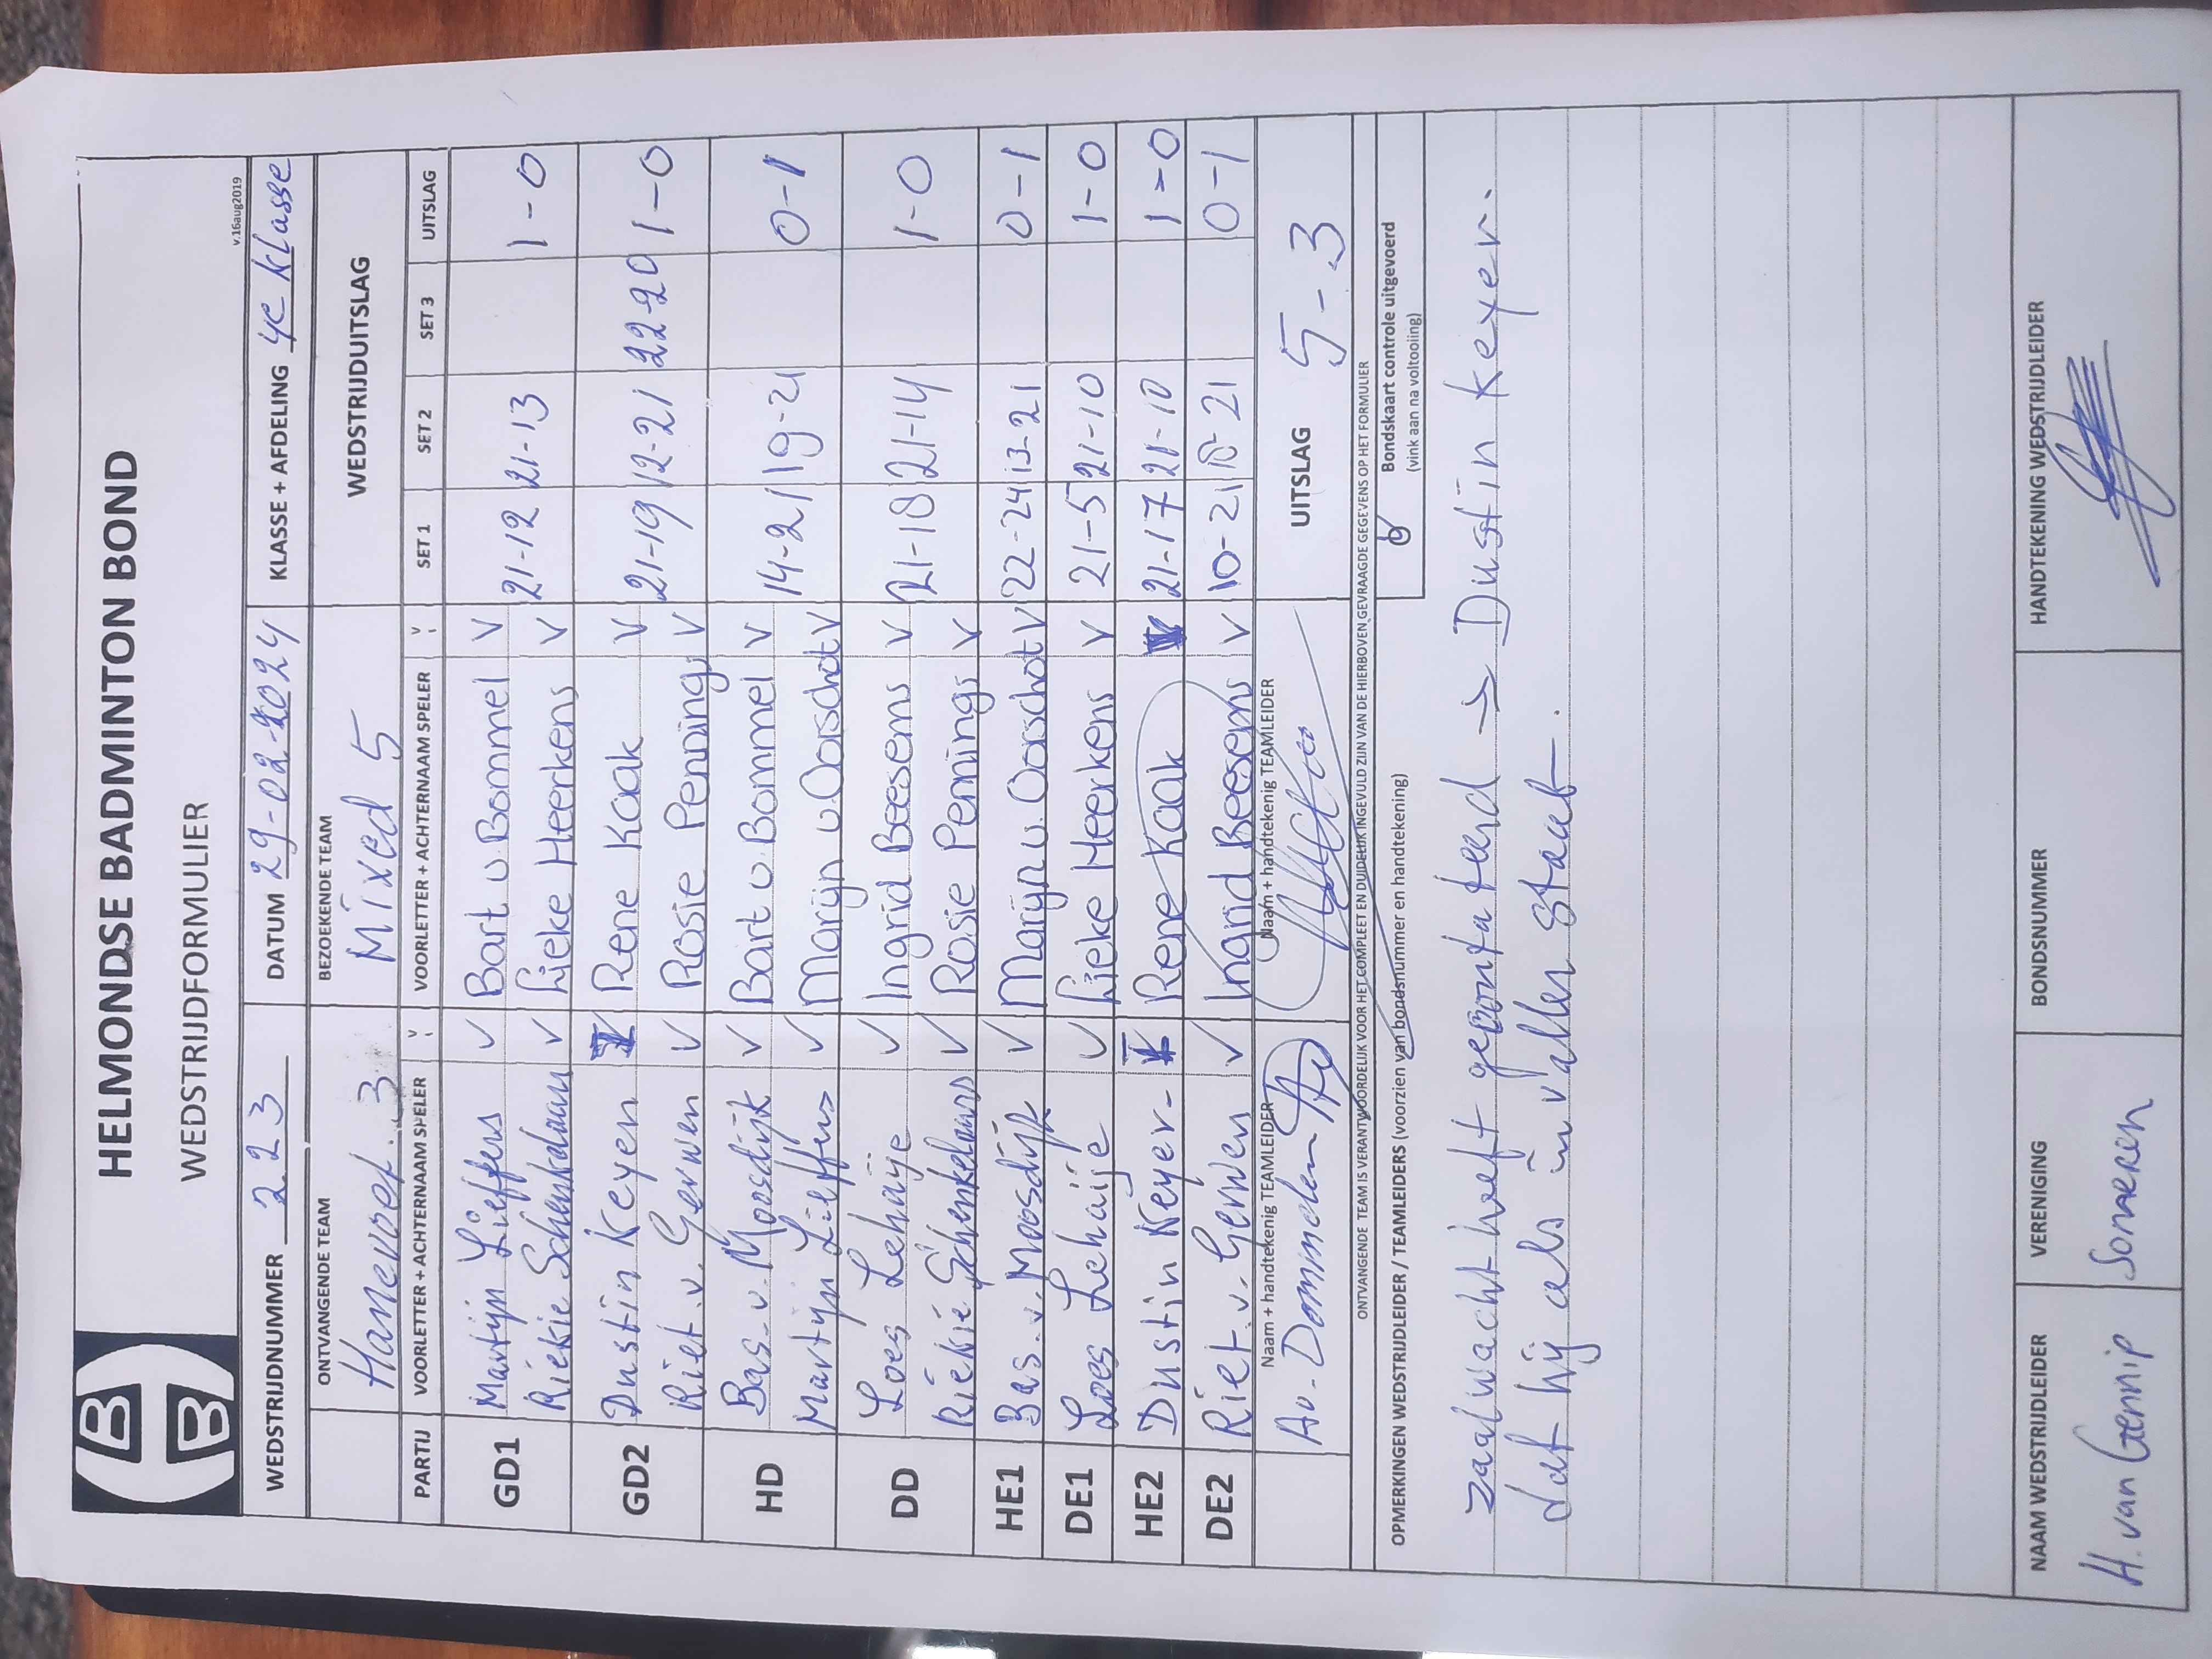 HELMONDSE BADMINTON BOND
WEDSTRIJDFORMULIER
v.16aug2019
WEDSTRIJDNUMMER 223 DATUM 29-02-2024 KLASSE + AFDELING 4e klasse
ONTVANGENDE TEAM BEZOEKENDE TEAM WEDSTRIJDUITSLAG
Hanevoet 3 Mixed 5
PARTIJ VOORLETTER + ACHTERNAAM SPELER V VOORLETTER + ACHTERNAAM SPELER V SET 1 SET 2 SET 3 UITSLAG
GD1 Martijn Lieffers V Bart v Bommel V 21-12 21-13 1-0
Riekie Schenkelaars V Lieke Heerkens V
GD2 Dustin Keyen Rene Kaak V 21-19 12-21 22-20 1-0
Riet v. Gerwen V Rosie Pennings V
HD Bas v. Moosdijk V Bart v. Bommel V 14-21 19-21 0-1
Martijn Lieffers V Marijn v. Oorschot V
DD Loes Lehaije V Ingrid Beesems V 21-18 21-14 1-0
Riekie Schenkelaars V Rosie Pennings V
HE1 Bas v. Moosdijk V Marijn v. Oorschot V 22-24 13-21 0-1
DE1 Loes Lehaije V Lieke Heerkens V 21-5 21-10 1-0
HE2 Dustin Keyer- Rene Kaak 21-17 21-10 1-0
DE2 Riet v. Gerwen V Ingrid Beesems V 10-21 18-21 0-1
Naam + handtekenig TEAMLEIDER Naam + handtekenig TEAMLEIDER UITSLAG 5-3
Av. Dommelen
ONTVANGENDE TEAM IS VERANTWOORDELIJK VOOR HET COMPLEET EN DUIDELIJK INGEVULD ZIJN VAN DE HIERBOVEN GEVRAAGDE GEGEVENS OP HET FORMULIER
OPMERKINGEN WEDSTRIJDLEIDER / TEAMLEIDERS (voorzien van bondsnummer en handtekening)
Bondskaart controle uitgevoerd
(vink aan na voltooiing)
zaalwacht heeft geconstateerd → Dustin Keyer.
dat hij als invaller staat.
NAAM WEDSTRIJDLEIDER VERENIGING BONDSNUMMER HANDTEKENING WEDSTRIJDLEIDER
H. van Gennip Someren